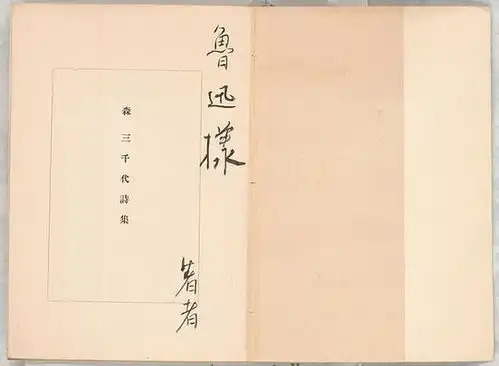 魯迅様
著者
森三千代詩集